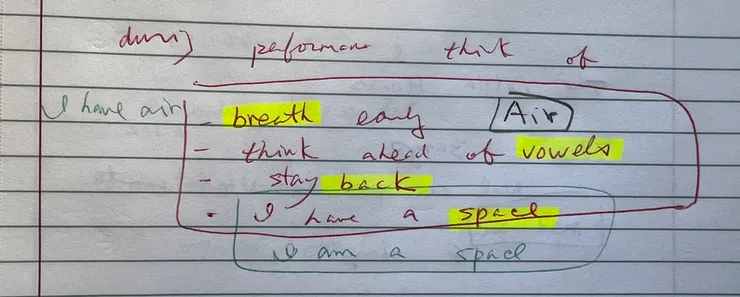 during performance think of
I have air
- breath early Air
- think ahead of vowels
- stay back
- I have a space
I am a space